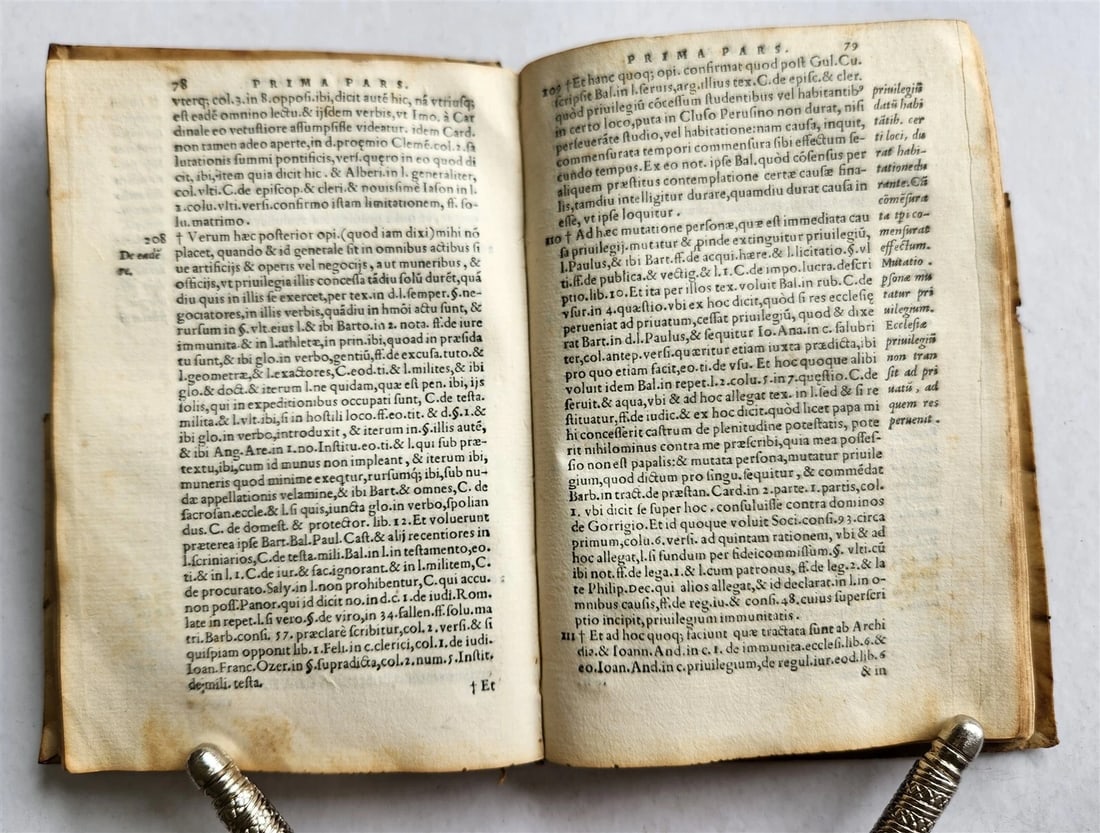 78 PRIMA PARS.
vterq; col.3.in 8.opposi.ibi,dicit autē hic, nā vtriusq;
est eadē omnino lectu.& ijsdem verbis,vt Imo. à Car
dinale eo vetustiore assumpsisse videatur. idem Card.
non tamen adeo aperte,in d.proęmio Clemē.col.2.sa
lutationis summi pontificis,vers.quęro in eo quod di
cit, ibi,item quia dicit hic. & Alberi.in l. generaliter,
col.vlti.C.de episcop.& cleri.& nouissimè Iason in l.
1.colu.vlti.versi.confirmo istam limitationem, ff. so-
lu.matrimo.
208 † Verum hæc posterior opi.(quod iam dixi)mihi nō
De eadē placet, quando & id generale sit in omnibus actibus si
re. ue artificijs & operis vel negocijs, aut muneribus, &
officijs,vt priuilegia illis concessa tādiu solū durēt,quā
diu quis in illis se exercet,per tex.in d.l.semper.§.ne-
gociatores,in illis verbis,quādiu in hmōi actu sunt, &
rursum in §.vlt.eius l.& ibi Barto.in 2. nota. ff.de iure
immunita.& in l.athletæ,in prin.ibi,quoad in præsida
tu sunt,& ibi glo.in verbo,gentiū,ff.de excusa.tuto.&
l.geometræ,& l.exactores,C.eod.ti.& l.milites,& ibi
glo.& doct.& iterum l.ne quidam,quæ est pen. ibi, ijs
solis,qui in expeditionibus occupati sunt, C.de testa.
milita.& l.vlt.ibi,si in hostili loco.ff.eo.tit. & d.§.1.&
ibi glo.in verbo,introduxit, & iterum in.§.illis autē,
& ibi Ang.Are.in 1.no.Institu.eo.ti.& l.qui sub præ-
textu,ibi,cum id munus non impleant, & iterum ibi,
muneris quod minime exeqtur,rursumq; ibi,sub nu-
dæ appellationis velamine,& ibi Bart.& omnes, C. de
sacrosan.eccle.& l.si quis,iuncta glo.in verbo,spolian
dus. C. de domest. & protector. lib.12.Et voluerunt
præterea ipse Bart.Bal.Paul. Cast.& alij recentiores in
l.scriniarios,C.de testa.mili.Bal.in l.in testamento,eo.
ti.& in l.1.C.de iur.& fac.ignorant.& in l.militem,C.
de procurato.Saly.in l.non prohibentur,C.qui accu.
non poss.Panor.qui id dicit no.in d.c.1.de iudi.Rom.
late in repet.l.si vero.§.de viro,in 34.fallen.ff.solu.ma
tri.Barb.consi. 57. præclarè scribitur,col.2.versi.& si
quispiam opponit lib.1.Feli.in c.clerici,col.1.de iudi.
Ioan.Franc.Ozer.in §.supradicta,col.2.num.5.Instit.
de mili. testa.
† Et
PRIMA PARS. 79
209 † Et hanc quoq; opi. confirmat quod post Gul.Cu.
scripsit Bal.in l.seruis,arg.illius tex.C.de episc.& cler.
quòd priuilegiū cōcessum studentibus vel habitantib⁹
in certo loco,puta in Cluso Perusino non durat, nisi
perseuerāte studio,vel habitatione:nam causa, inquit,
commensurata tempori commensura sibi effectum se-
cundo tempus.Ex eo not. ipse Bal.quòd cōsensus per
aliquem præstitus contemplatione certæ causæ fina-
lis,tamdiu intelligitur durare,quamdiu durat causa in
esse, vt ipse loquitur.
priuilegiū
datū habi
tātib. cer
ti loci, du
rat habi-
tatione du
rante.Cā
cōmēsura
ta tpi co-
mensurat
effectum.
210 † Ad hæc mutatione personæ,quæ est immediata cau
sa priuilegij.mutatur & ꝓinde extinguitur priuilegiū,
l.Paulus,& ibi Bart.ff.de acqui.hære.& l.licitatio.§.vl
ti.ff.de publica.& vectig.& l.1.C.de impo.lucra.descri
ptio.lib.10.Et ita per illos tex.voluit Bal.in rub.C.de
vsur.in 4.quæstio.vbi ex hoc dicit,quòd si res ecclesię
perueniat ad priuatum,cessat priuilegiū, quod & dixe
rat Bart.in d.l.Paulus,& sequitur Io.Ana.in c. salubri
ter,col.antep.versi.quæritur etiam iuxta prædicta,ibi
pro quo etiam facit,eo.ti.de vsu. Et hoc quoque alibi
voluit idem Bal.in repet.l.2.colu.5.in 7.quęstio.C.de
seruit.& aqua,vbi & ad hoc allegat tex. in l.sed & si re
stituatur,ff.de iudic.& ex hoc dicit.quòd licet papa mi
hi concesserit castrum de plenitudine potestatis, pote
rit nihilominus contra me præscribi,quia mea posses-
sio non est papalis:& mutata persona,mutatur priuile
gium,quod dictum pro singu.sequitur, & commēdat
Barb.in tract.de præstan. Card.in 2.parte.1.partis,col.
1. vbi dicit se super hoc. consuluisse contra dominos
de Gorrigio.Et id quoque voluit Soci.consi.93.circa
primum,colu.6.versi. ad quintam rationem, vbi & ad
hoc allegat,l.si fundum per fideicommissum.§. vlti.cū
ibi not.ff.de lega.1.& l.cum patronus, ff.de leg.2.& la
te Philip.Dec.qui alios allegat,& id declarat.in l.in o-
mnibus causis,ff.de reg.iu.& consi.48.cuius superscri
ptio incipit,priuilegium immunitatis.
Mutatio.
psonæ mu
tatur pri
uilegium.
Ecclesiæ
priuilegiū
non tran
sit ad pri
uatū, ad
quem res
peruenit.
211 † Et ad hoc quoq; faciunt quæ tractata sunt ab Archi
dia.& Ioann.And.in c.1. de immunita.ecclesi.lib.6.&
eo.Ioan.And.in c.priuilegium,de regul.iur.eod.lib.6
& in